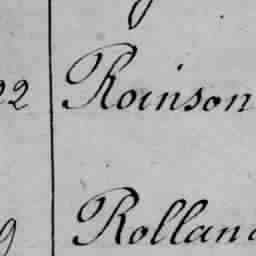 22 Roinson
9 Rolland